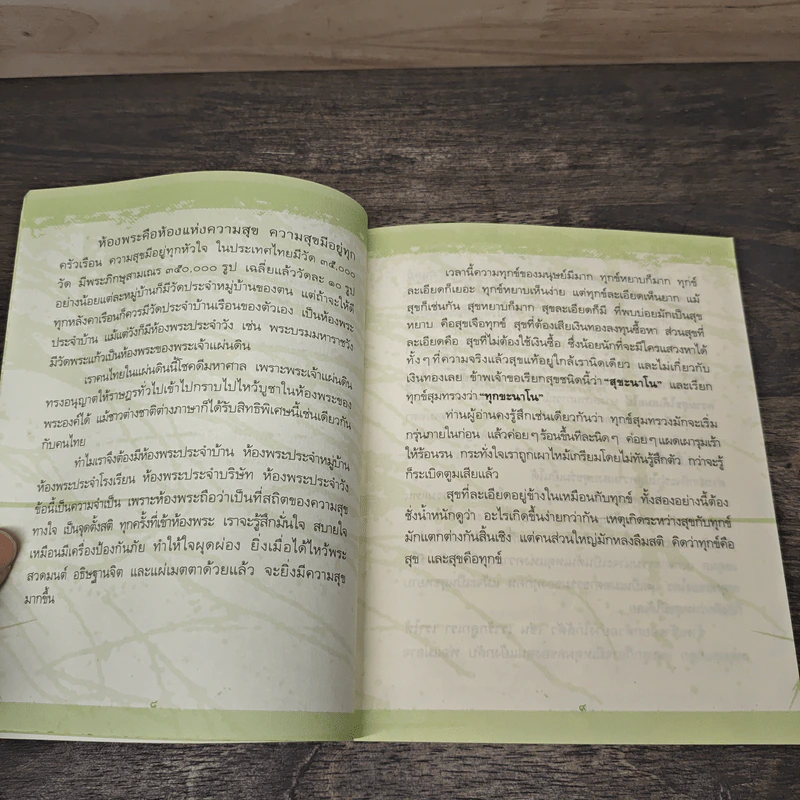 ห้องพระคือห้องแห่งความสุข ความสุขมีอยู่ทุก
ครัวเรือน ความสุขมีอยู่ทุกหัวใจ ในประเทศไทยมีวัด ๓๕,๐๐๐
วัด มีพระภิกษุสามเณร ๓๕๐,๐๐๐ รูป เฉลี่ยแล้ววัดละ ๑๐ รูป
อย่างน้อยแต่ละหมู่บ้านก็มีวัดประจำหมู่บ้านของตน แต่ถ้าจะให้ดี
ทุกหลังคาเรือนก็ควรมีวัดประจำบ้านเรือนของตัวเอง เป็นห้องพระ
ประจำบ้าน แม้แต่วังก็มีห้องพระประจำวัง เช่น พระบรมมหาราชวัง
มีวัดพระแก้วเป็นห้องพระของพระเจ้าแผ่นดิน
เราคนไทยในแผ่นดินนี้โชคดีมหาศาล เพราะพระเจ้าแผ่นดิน
ทรงอนุญาตให้ราษฎรทั่วไปเข้าไปกราบไปไหว้บูชาในห้องพระของ
พระองค์ได้ แม้ชาวต่างชาติต่างภาษาก็ได้รับสิทธิพิเศษนี้เช่นเดียวกัน
กับคนไทย
ทำไมเราจึงต้องมีห้องพระประจำบ้าน ห้องพระประจำหมู่บ้าน
ห้องพระประจำโรงเรียน ห้องพระประจำบริษัท ห้องพระประจำวัง
ข้อนี้เป็นความจำเป็น เพราะห้องพระถือว่าเป็นที่สถิตของความสุข
ทางใจ เป็นจุดตั้งสติ ทุกครั้งที่เข้าห้องพระ เราจะรู้สึกมั่นใจ สบายใจ
เหมือนมีเครื่องป้องกันภัย ทำให้ใจผุดผ่อง ยิ่งเมื่อได้ไหว้พระ
สวดมนต์ อธิษฐานจิต และแผ่เมตตาด้วยแล้ว จะยิ่งมีความสุข
มากขึ้น
๘
เวลานี้ความทุกข์ของมนุษย์มีมาก ทุกข์หยาบก็มาก ทุกข์
ละเอียดก็เยอะ ทุกข์หยาบเห็นง่าย แต่ทุกข์ละเอียดเห็นยาก แม้
สุขก็เช่นกัน สุขหยาบก็มาก สุขละเอียดก็มี ที่พบบ่อยมักเป็นสุข
หยาบ คือสุขเจือทุกข์ สุขที่ต้องเสียเงินทองลงทุนซื้อหา ส่วนสุขที่
ละเอียดคือ สุขที่ไม่ต้องใช้เงินซื้อ ซึ่งน้อยนักที่จะมีใครแสวงหาได้
ทั้งๆ ที่ความจริงแล้วสุขแท้อยู่ใกล้เรานิดเดียว และไม่เกี่ยวกับ
เงินทองเลย ข้าพเจ้าขอเรียกสุขชนิดนี้ว่า “สุขะนาโน” และเรียก
ทุกข์สุมทรวงว่า “ทุกขะนาโน”
ท่านผู้อ่านคงรู้สึกเช่นเดียวกันว่า ทุกข์สุมทรวงมักจะเริ่ม
กรุ่นภายในก่อน แล้วค่อยๆ ร้อนขึ้นทีละนิดๆ ค่อยๆ แผดเผารุมเร้า
ให้ร้อนรน กระทั่งใจเราถูกเผาไหม้เกรียมโดยไม่ทันรู้สึกตัว กว่าจะรู้
ก็ระเบิดตูมเสียแล้ว
สุขที่ละเอียดอยู่ข้างในเหมือนกับทุกข์ ทั้งสองอย่างนี้ต้อง
ชั่งน้ำหนักดูว่า อะไรเกิดขึ้นง่ายกว่ากัน เหตุเกิดระหว่างสุขกับทุกข์
มักแตกต่างกันสิ้นเชิง แต่คนส่วนใหญ่มักหลงลืมสติ คิดว่าทุกข์คือ
สุข และสุขคือทุกข์
๙